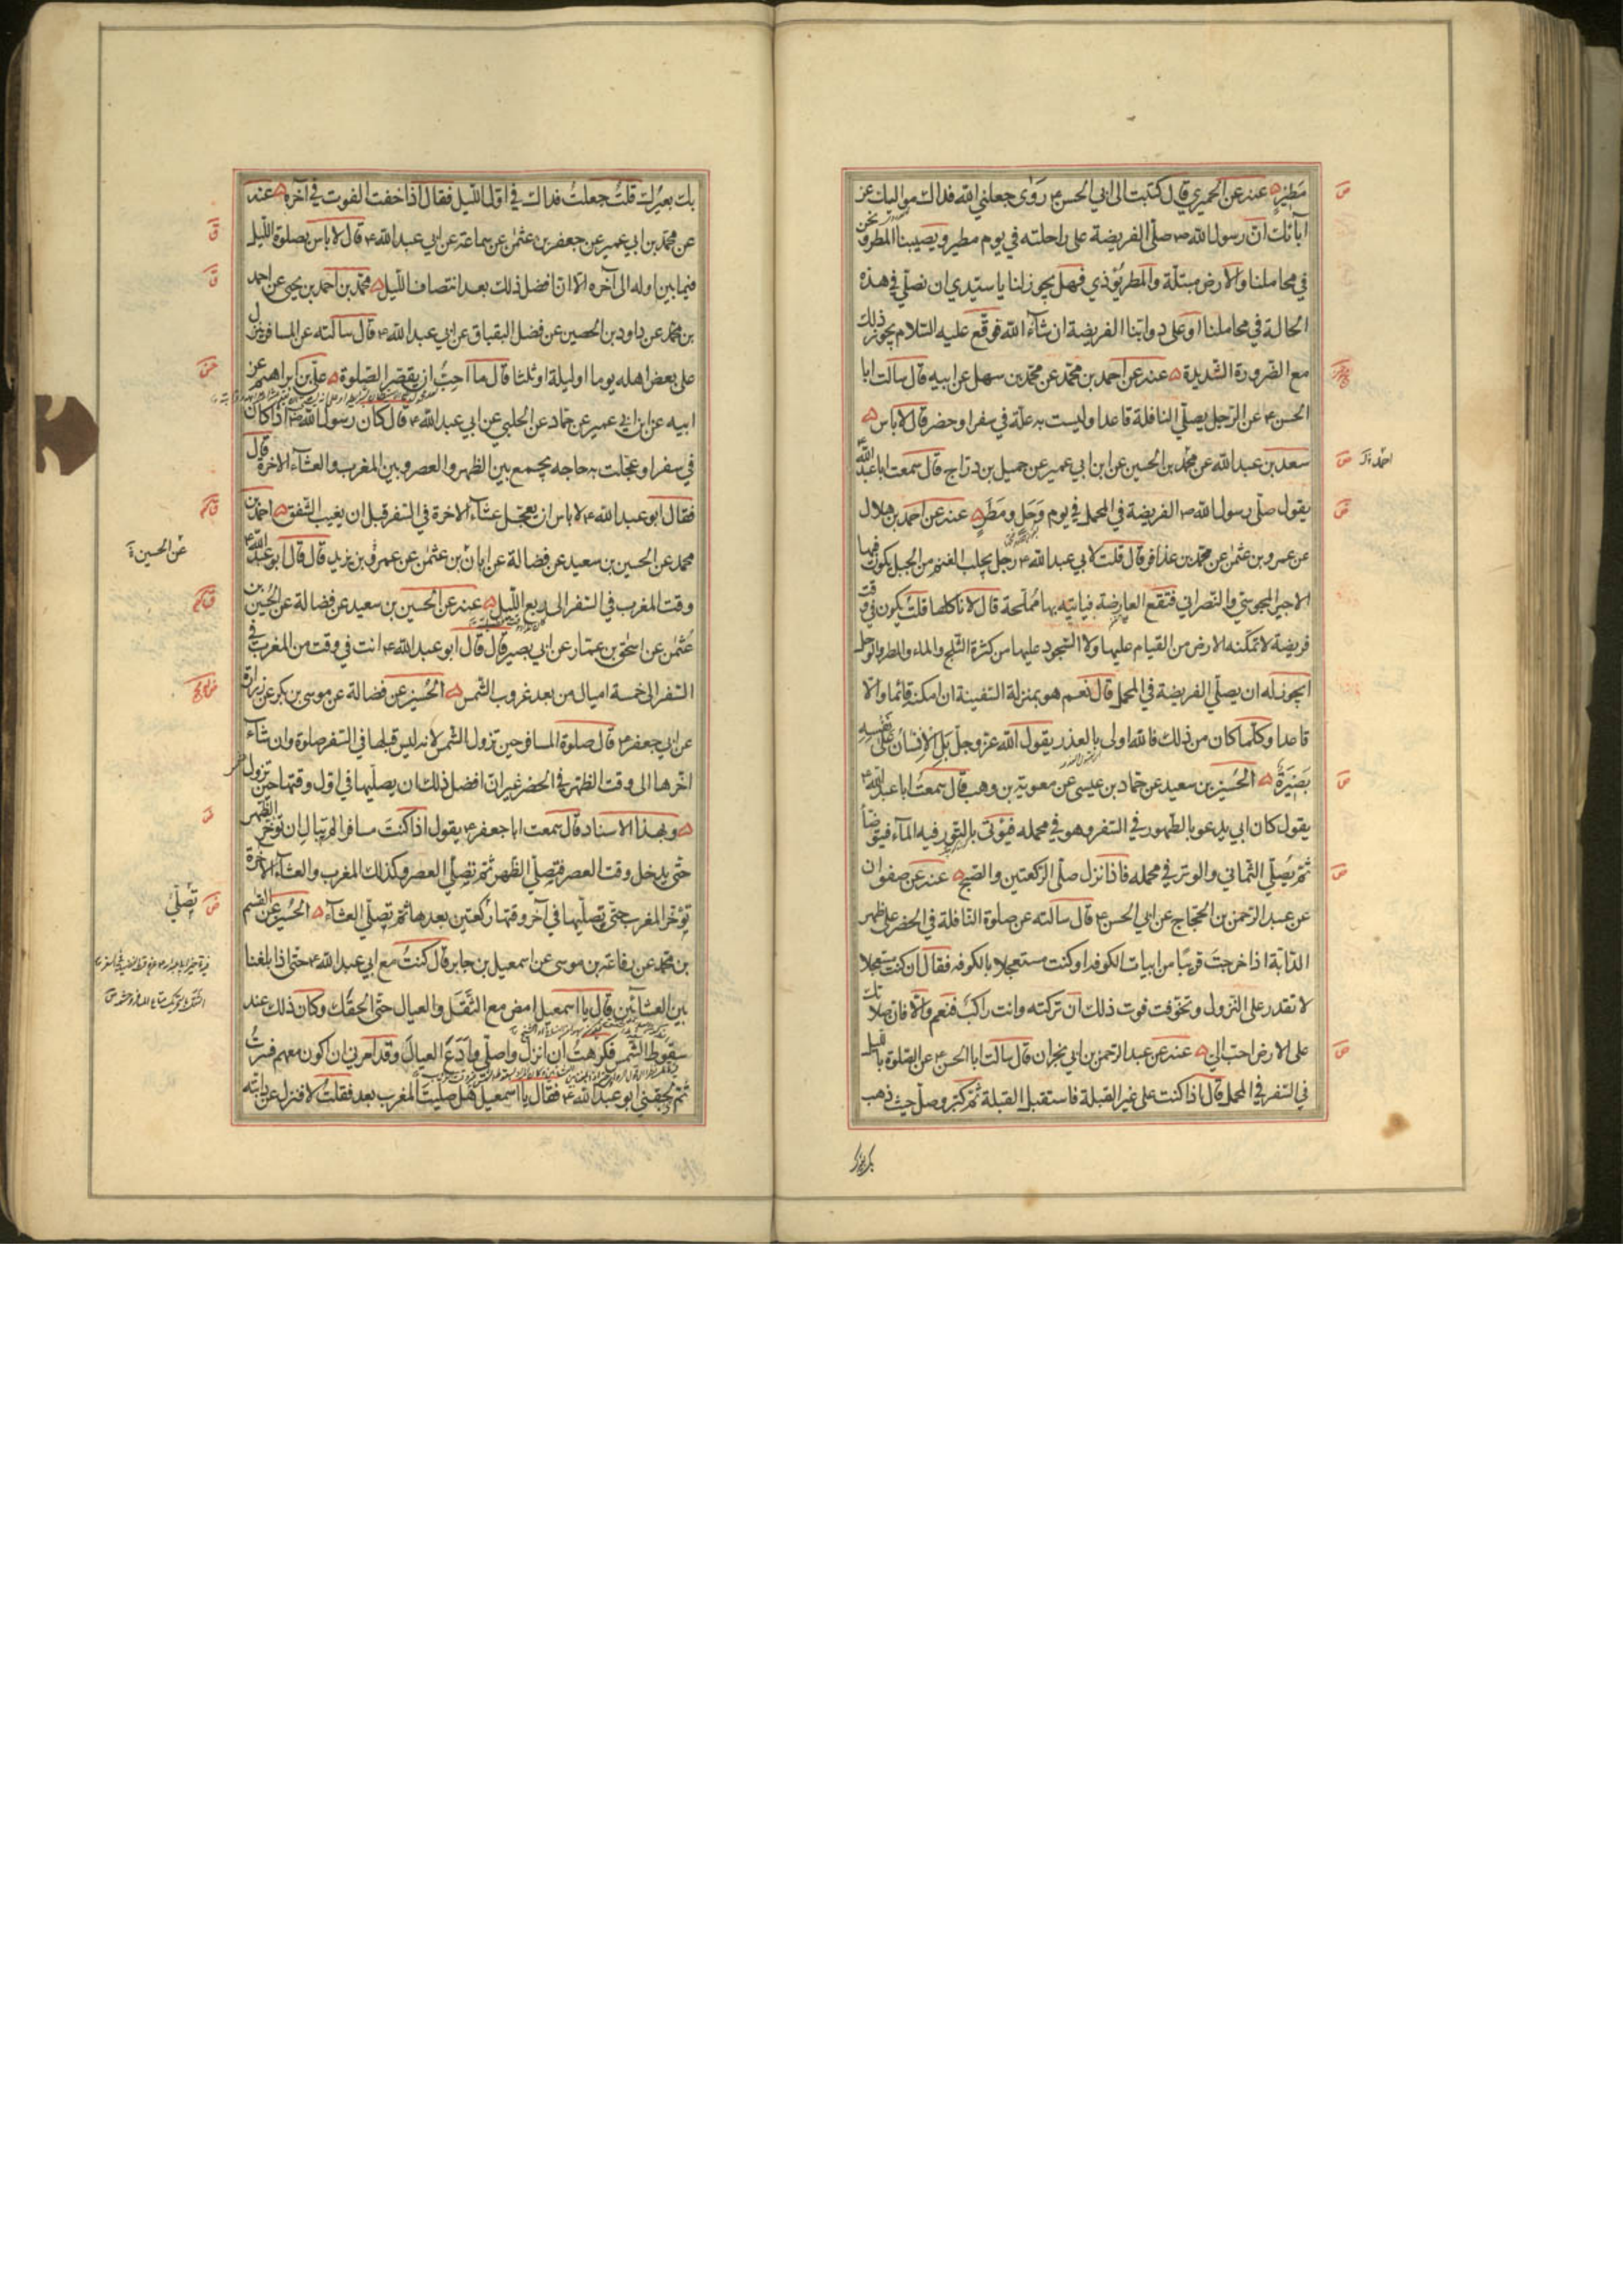 مَطِيرٍ عنه عن الحميري قال كتبت الى ابي الحسن ع رَوَى جعلني الله فداك مواليك عن
آبائك ان رسول الله ص صلّى الفريضة على راحلته في يوم مطير ويصيبنا المطر ونحن
في محاملنا والارض مبتلّة والمطر يؤذي فهل يجوز لنا يا سيّدي ان نصلّي في هذه
الحالة في محاملنا او على دوابّنا الفريضة ان شآء الله فوقّع عليه السّلام يجوز ذلك
مع الضرورة الشديدة عنه عن احمد بن محمّد عن محمّد بن سهل عن ابيه قال سالت ابا
الحسن ع عن الرّجل يصلّي النافلة قاعدا وليست به علّة في سفر او حضر قال لا باس
سعد بن عبد الله عن محمّد بن الحسين عن ابن ابي عمير عن جميل بن درّاج قال سمعت ابا عبد الله ع
يقول صلّى رسول الله ص الفريضة في المحمل في يوم وَحَلٍ ومَطَرٍ عنه عن احمد بن هلال
عن عمرو بن عثمن عن محمّد بن عذافر قال قلت لابي عبد الله ع رجل يجلب الغنم من الجبل يكون فيها
الاجير المجوسيّ والنّصراني فتقع العارضة فياتيه بها مُملّحة قال لا تاكلها قلتُ يكون في وقت
فريضة لا تمكّنه الارض من القيام عليها ولا السّجود عليها من كثرة الثلج والماء والمطر والوحل
ايجوز له ان يصلّي الفريضة في المحمل قال نعم هو بمنزلة السّفينة ان امكنه قائما والّا
قاعدا وكلّما كان من ذلك فالله اولى بالعذر يقول الله عزّ وجلّ بَلِ الإنسَانُ عَلَى نَفْسِهِ
بَصِيرَةٌ الحُسين بن سعيد عن حمّاد بن عيسى عن معوية بن وهب قال سمعت ابا عبد الله ع
يقول كان ابي يدعو بالطّهور في السّفر وهو في محمله فيؤتى بالتّور فيه المآء فيتوضّأ
ثمّ يُصلّي الثّماني والوتر في محمله فاذا نزل صلّى الرّكعتين والصّبح عنه عن صفوان
عن عبد الرّحمن بن الحجّاج عن ابي الحسن ع قال سالته عن صلوة النّافلة في الحضر على ظهر
الدّابّة اذا خرجتَ قريبًا من ابيات الكوفه او كنت مستعجلا بالكوفه فقال ان كنت مستعجلا
لا تقدر على النّزول وتخوّفت فوت ذلك ان تركته وانت راكب فنعم والّا فان صلاتك
على الارض احبّ اليّ عنه عن عبد الرّحمن بن ابي نجران قال سالت ابا الحسن ع عن الصّلوة بالليل
في السّفر في المحمل قال اذا كنت على غير القبلة فاستقبل القبلة ثمّ كبّر وصلّ حيث ذهب
بك بعيرُك قلتُ جعلتُ فداك في اوّل اللّيل فقال اذا خفت الفوت في آخره عنه
عن محمّد بن ابي عمير عن جعفر بن عثمن عن سماعة عن ابي عبد الله ع قال لا باس بصلوة اللّيل
فيما بين اوله الى آخره الا ان افضل ذلك بعد انتصاف اللّيل محمّد بن احمد بن يحيى عن احمد
بن محمّد عن داود بن الحصين عن فضل البقباق عن ابي عبد الله ع قال سالته عن المسافر ينزل
على بعض اهله يوما او ليلة او ثلثا قال ما احبّ ان يقصّر الصّلوة عليّ بن ابراهيم عن
ابيه عن ابن ابي عمير عن حمّاد عن الحلبي عن ابي عبد الله ع قال كان رسول الله ص اذا كان
في سفر او عجّلت به حاجه يجمع بين الظهر والعصر وبين المغرب والعشآء الاخرة قال
فقال ابو عبد الله ع لا باس ان يعجّل عشآء الاخرة في السّفر قبل ان يغيب الشّفق احمد بن
محمد عن الحسين بن سعيد عن فضالة عن ابان بن عثمن عن عمر بن يزيد قال قال ابو عبد الله ع
وقت المغرب في السّفر الى ربع اللّيل عنه عن الحسين بن سعيد عن فضالة عن الحُسين بن
عُثمن عن اسحق بن عمّار عن ابي بصير قال قال ابو عبد الله ع انت في وقت من المغرب في
السّفر الى خمسة اميال من بعد غروب الشّمس الحُسين عن فضالة عن موسى بن بكر عن زرارة
عن ابي جعفر ع قال صلوة المسافر حين تزول الشّمس لانه ليس قبلها في السّفر صلوة وان شآء
اخّرها الى وقت الظهر في الحضر غير ان افضل ذلك ان يصلّيها في اوّل وقتها حين تزول
وبهذا الاسناد قال سمعت ابا جعفر ع يقول اذا كنتَ مسافرا لم تبال ان تؤخّر الظهر
حتّى يدخل وقت العصر فتصلّي الظهر ثمّ تصلّي العصر وكذلك المغرب والعشآء الآخرة
تؤخّر المغرب حتّى تصلّيها في آخر وقتها ركعتين بعدها ثمّ تصلّي العشآء الحُسين عن القسم
بن محمد عن رفاعة بن موسى عن اسمعيل بن جابر قال كنتُ مع ابي عبد الله ع حتى اذا بلغنا
بين العشائين قال يا اسمعيل امض مع الثَّقَل والعيال حتّى الحقك وكان ذلك عند
سقوط الشّمس فكرهتُ ان انزل واصلّي وادَعَ العيال وقد امرني ان اكون معهم فسرتُ
ثمّ لحقني ابو عبد الله ع فقال يا اسمعيل هل صليتَ المغرب بعد فقلتُ لا فنزل عن دابّته
عن الحسين
تُصلّي